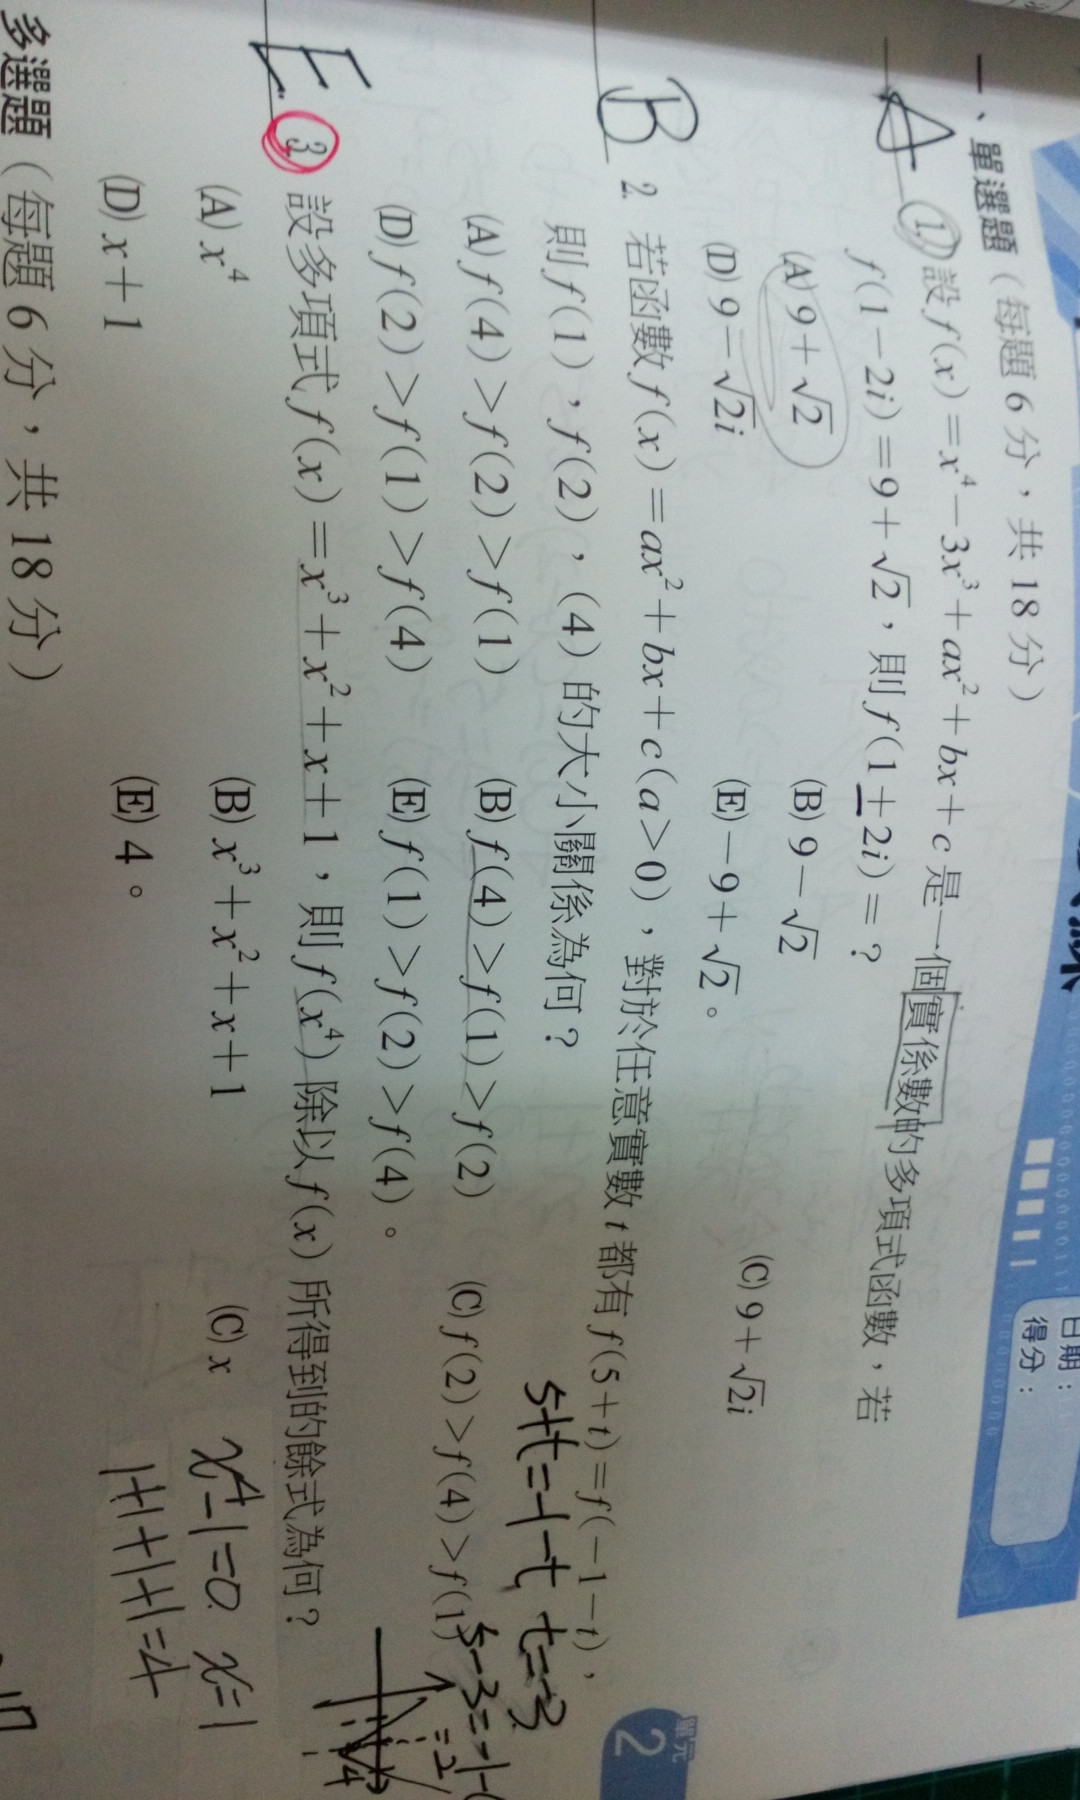 日期：
得分：
一、單選題（每題 6 分，共 18 分）
A 1. 設 f(x)=x⁴-3x³+ax²+bx+c 是一個實係數的多項式函數，若
f(1-2i)=9+√2，則 f(1+2i)=？
(A) 9+√2 (B) 9-√2 (C) 9+√2i
(D) 9-√2i (E) -9+√2。
單元 2
B 2. 若函數 f(x)=ax²+bx+c(a>0)，對於任意實數 t 都有 f(5+t)=f(-1-t)，
則 f(1)，f(2)，(4) 的大小關係為何？
5+t=-1-t t=-3
(A) f(4)>f(2)>f(1) (B) f(4)>f(1)>f(2) (C) f(2)>f(4)>f(1)
5-3=-1-(
=2
(D) f(2)>f(1)>f(4) (E) f(1)>f(2)>f(4)。
4
E 3. 設多項式 f(x)=x³+x²+x+1，則 f(x⁴) 除以 f(x) 所得到的餘式為何？
(A) x⁴ (B) x³+x²+x+1 (C) x
x⁴-1=0 x=1
(D) x+1 (E) 4。
1+1+1+1=4
多選題（每題 6 分，共 18 分）